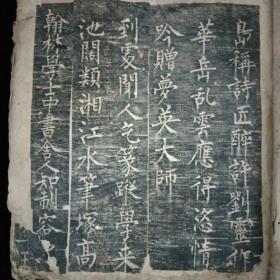 島稱詩匠醉許劉靈作
華岳乱雲應得恣情
吟贈夢英大師
到處聞人乞篆蹤學来
池闊類湘江水筆塚高
翰林學士中書舍人知制容